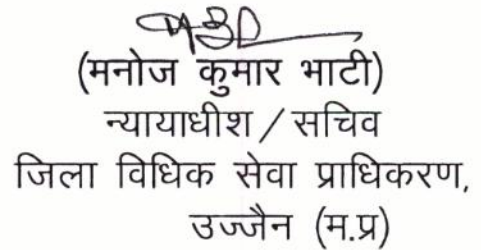 (मनोज कुमार भाटी)
न्यायाधीश / सचिव
जिला विधिक सेवा प्राधिकरण,
उज्जैन (म.प्र)